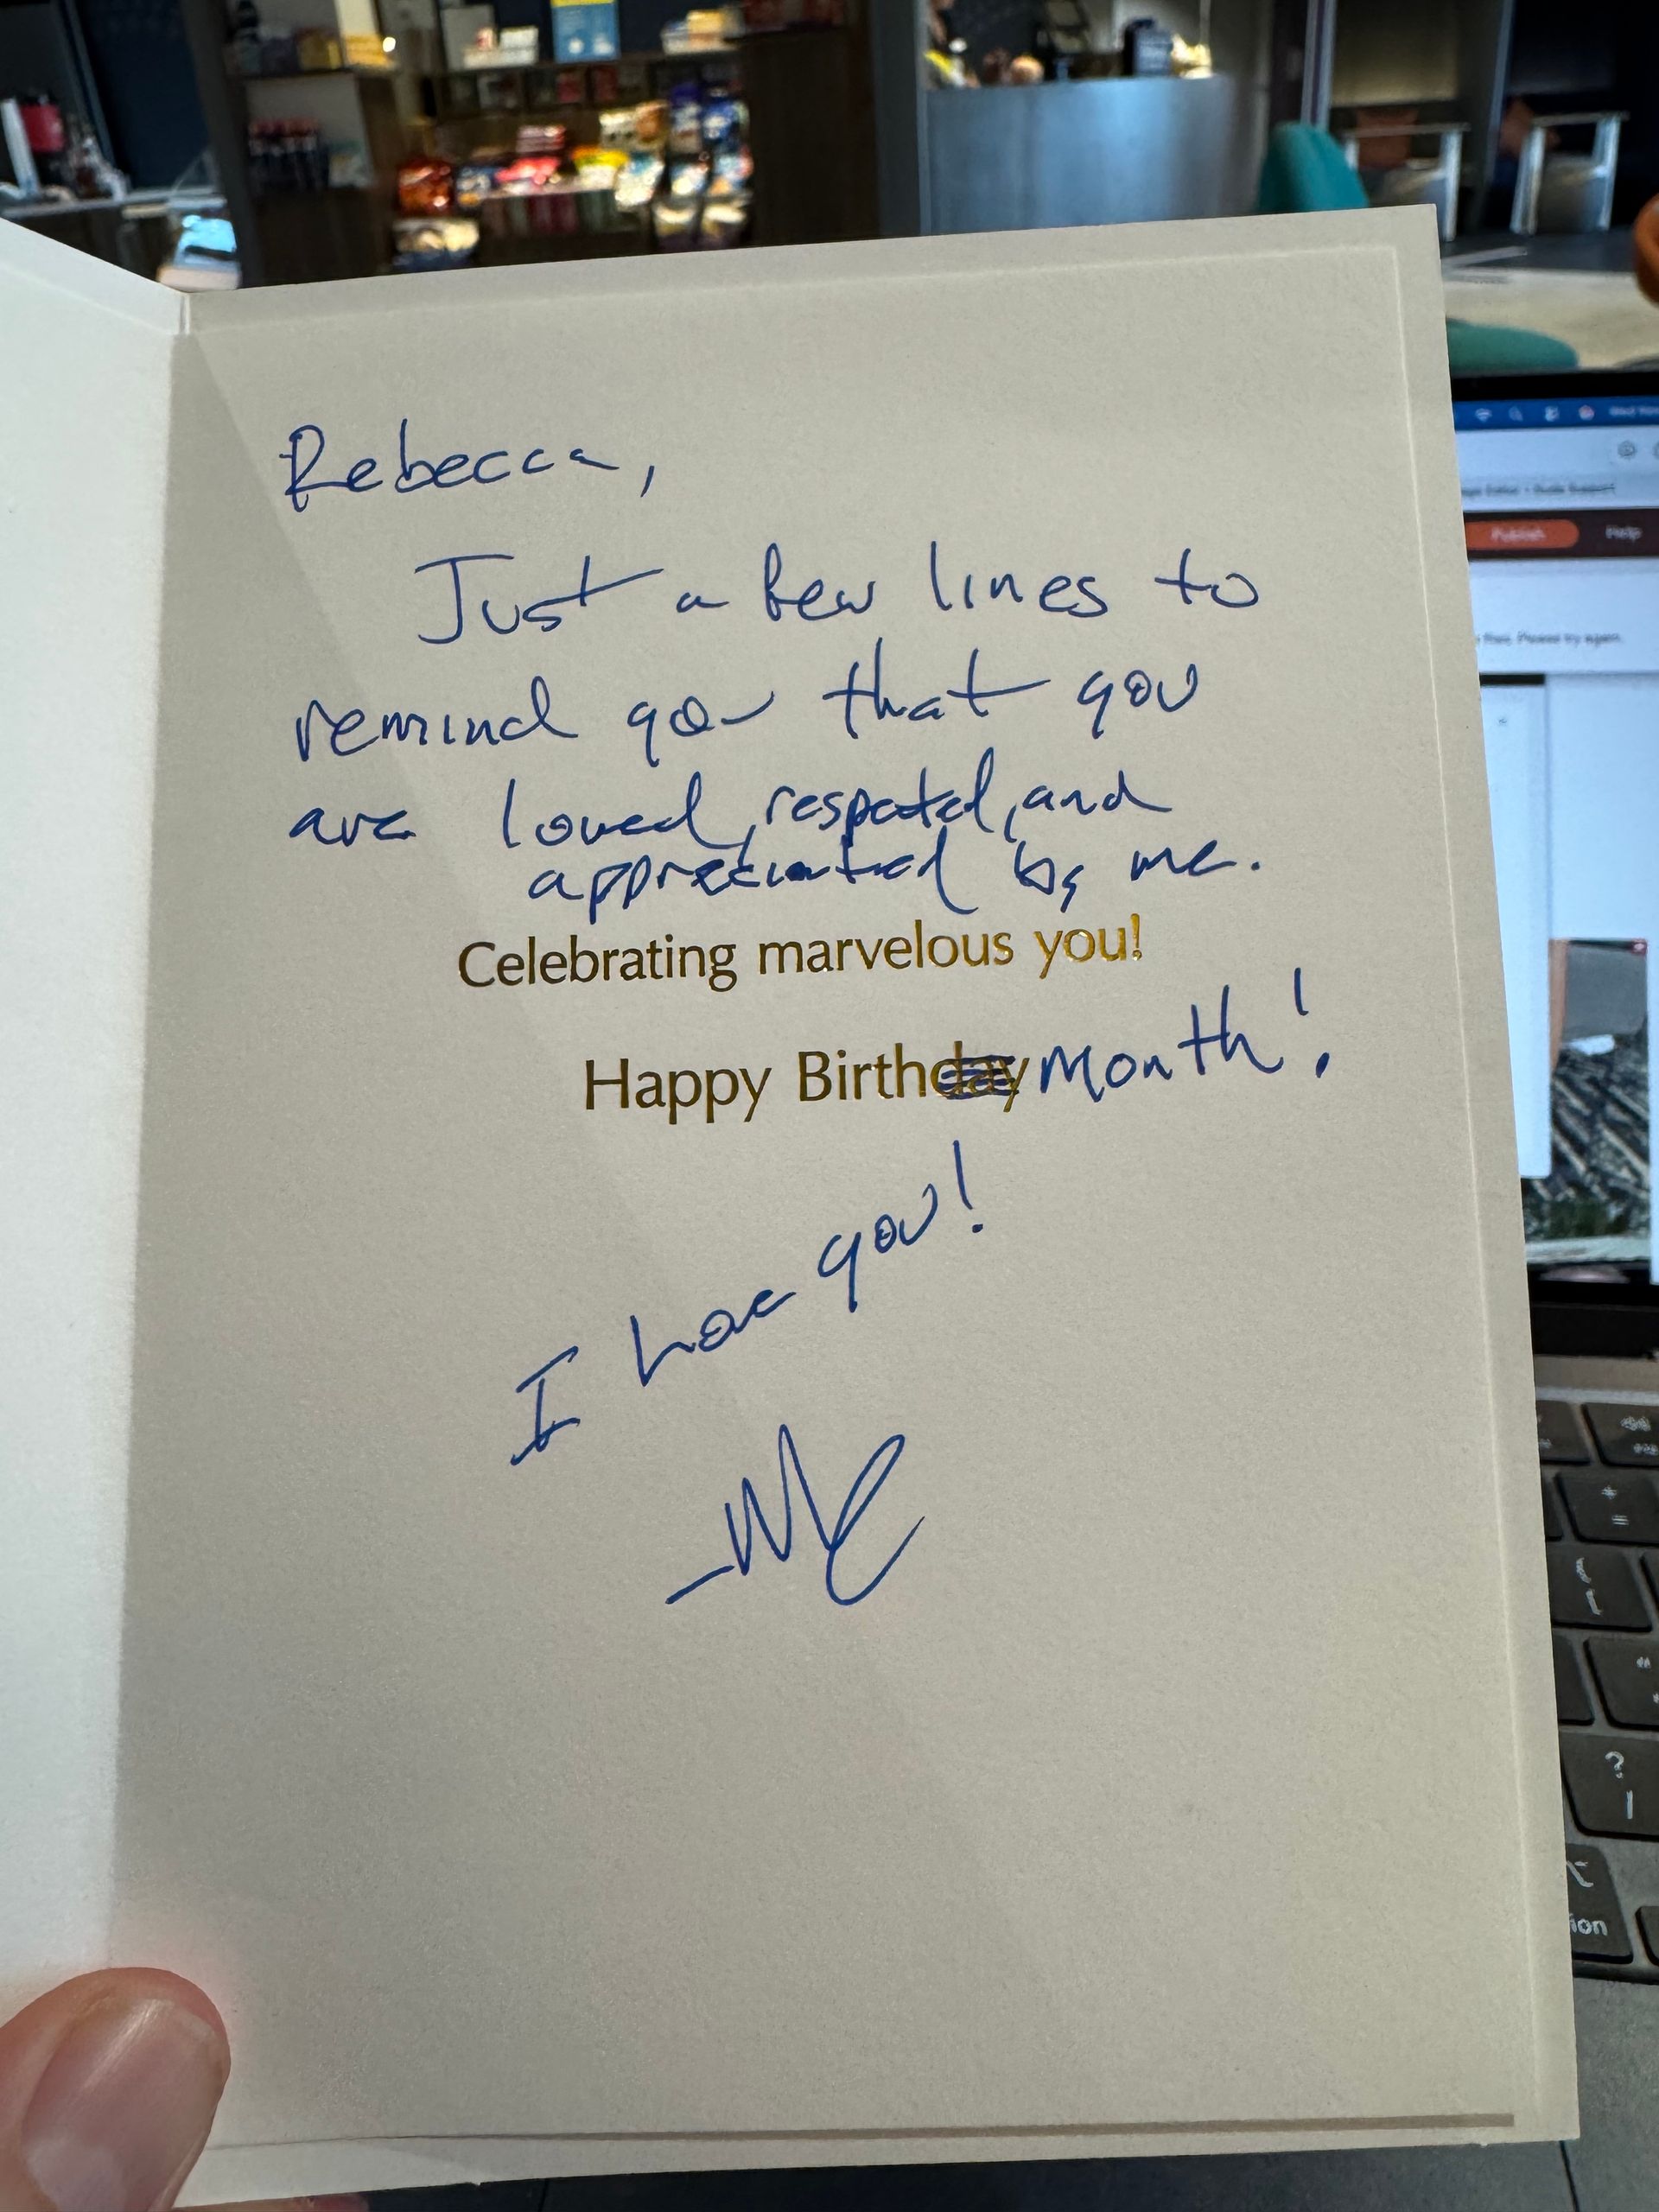 Rebecca,
Just a few lines to
remind you that you
are loved, respected, and
appreciated by me.
Celebrating marvelous you!
Happy Birthday month!
I love you!
Publish
Help
Please try again.
?
/
+
=